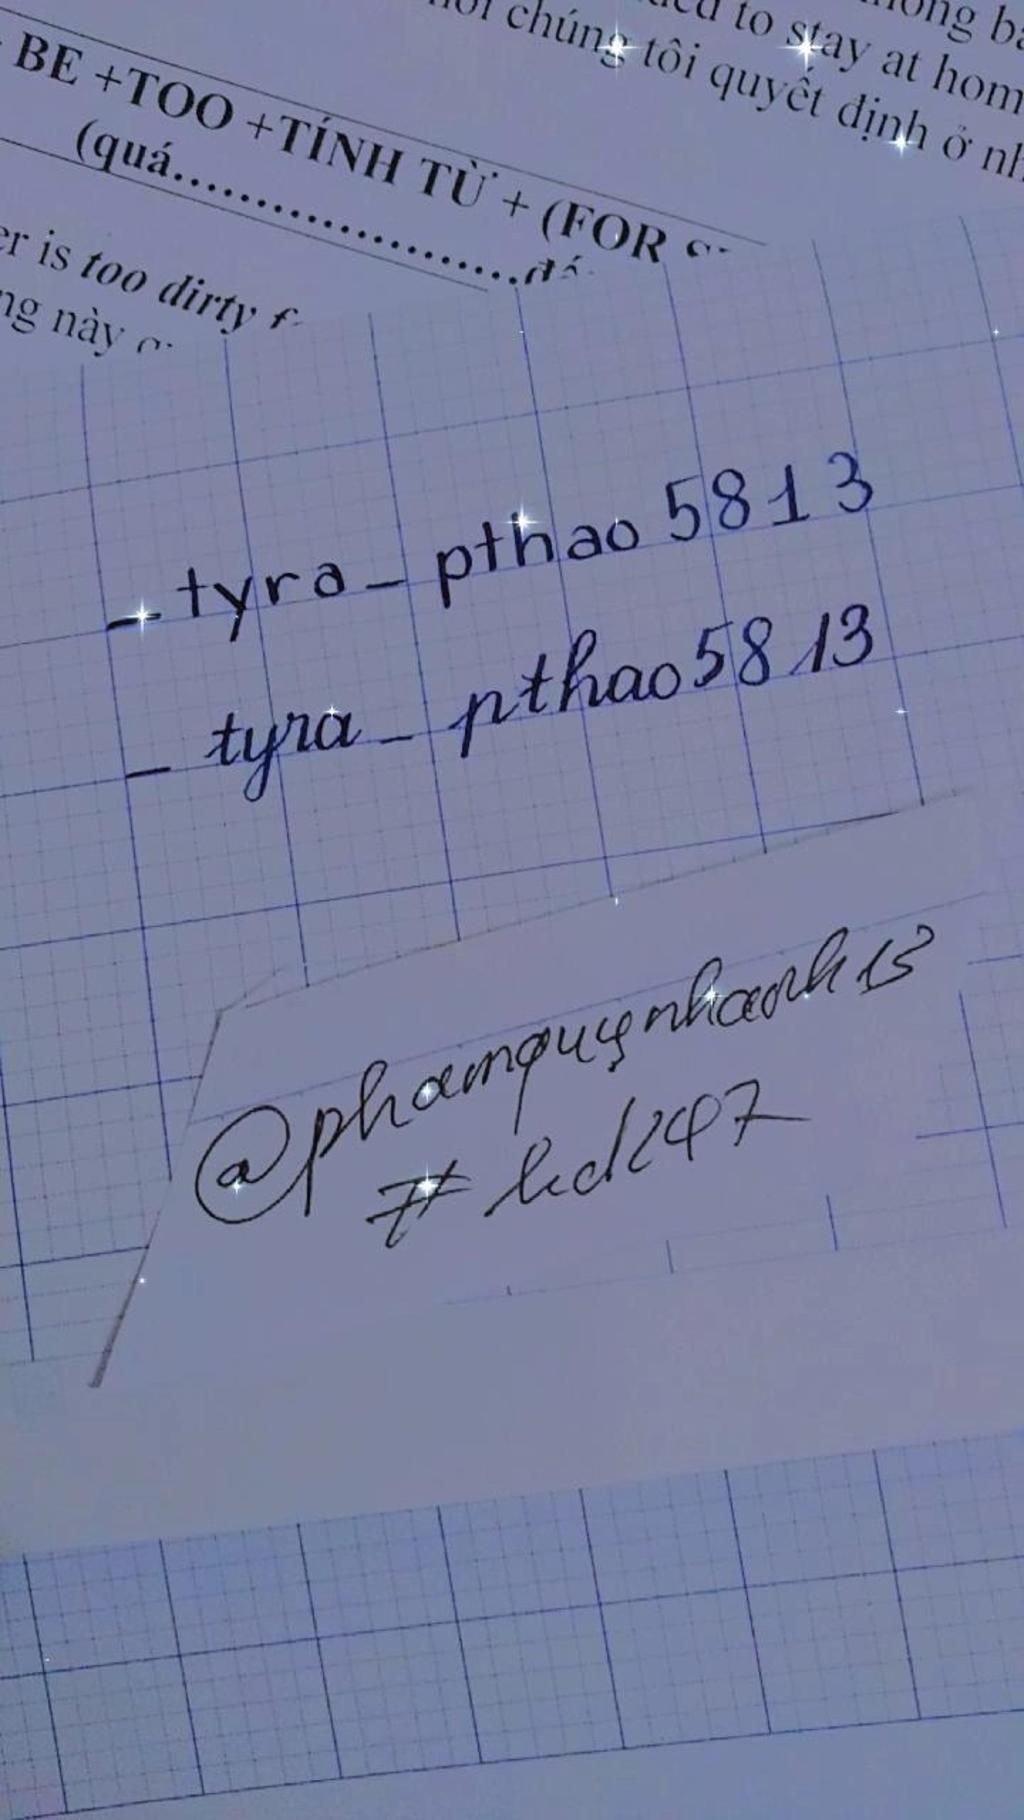 to stay at hom
chúng tôi quyết định ở nh
BE +TOO +TÍNH TỪ + (FOR
(quá....................
is too dirty
này
_ tyra _ pthao 5813
_ tyra _ pthao5813
@phamquynhanh13
# hd247